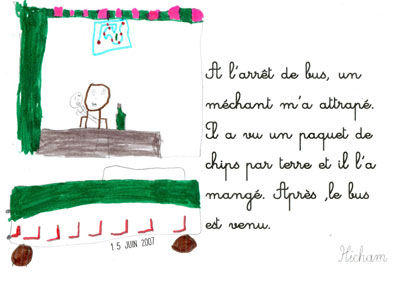 A l'arrêt de bus, un
méchant m'a attrapé.
Il a vu un paquet de
chips par terre et il l'a
mangé. Après ,le bus
est venu.
Hicham
15 JUIN 2007